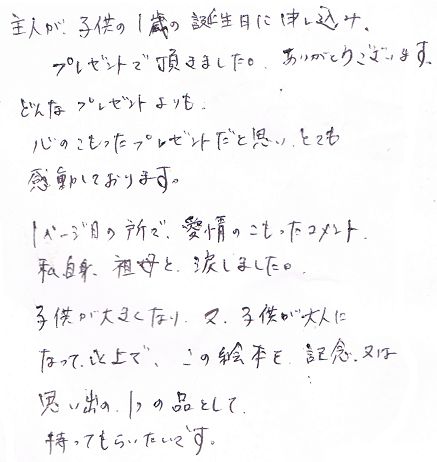 主人が、子供の1歳の誕生日に申し込み、
プレゼントで頂きました。ありがとうございます。
どんなプレゼントよりも、
心のこもったプレゼントだと思い、とても
感動しております。
1ページ目の所で、愛情のこもったコメント、
私自身、祖母と、涙しました。
子供が大きくなり、又、子供が大人に
なっていく上で、この絵本を、記念、又は
思い出の1つの品として、
持ってもらいたいです。